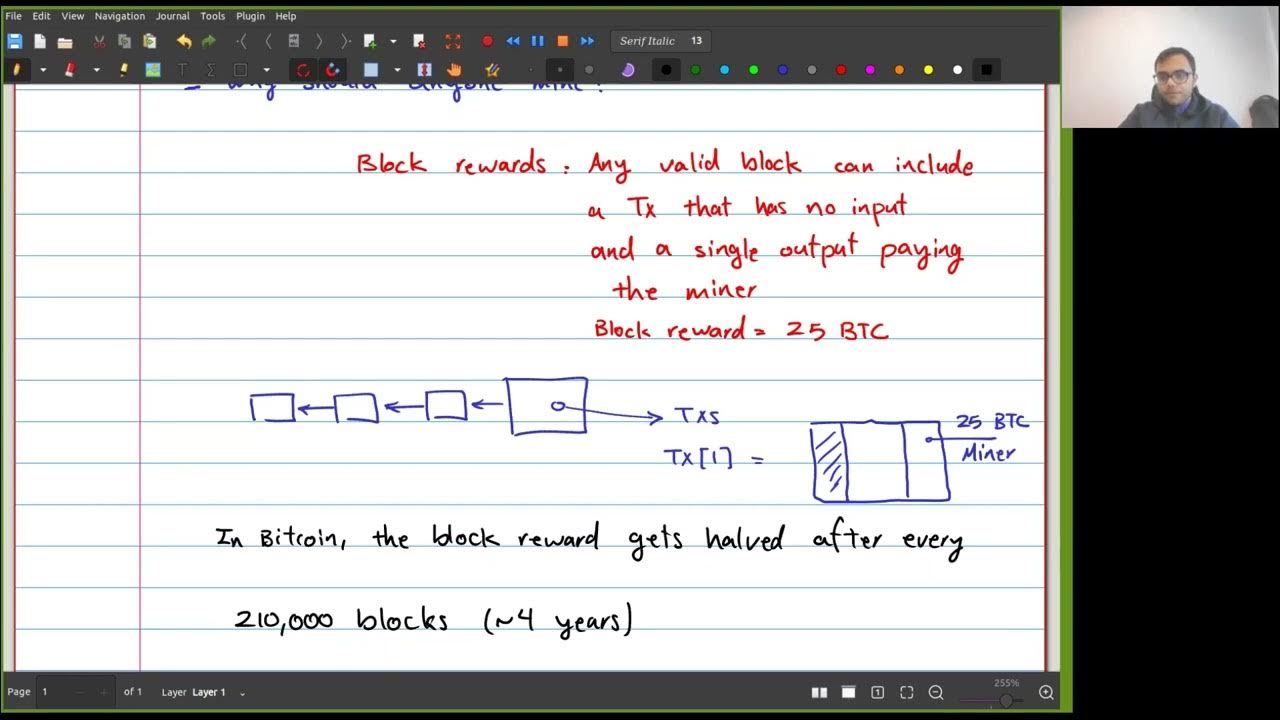 File Edit View Navigation Journal Tools Plugin Help
Serif Italic 13
- Why should anyone mine?
Block rewards: Any valid block can include
a Tx that has no input
and a single output paying
the miner
Block reward = 25 BTC
TXs
TX[1] =
25 BTC
Miner
In Bitcoin, the block reward gets halved after every
210,000 blocks (~4 years)
Page 1 of 1 Layer Layer 1
255%